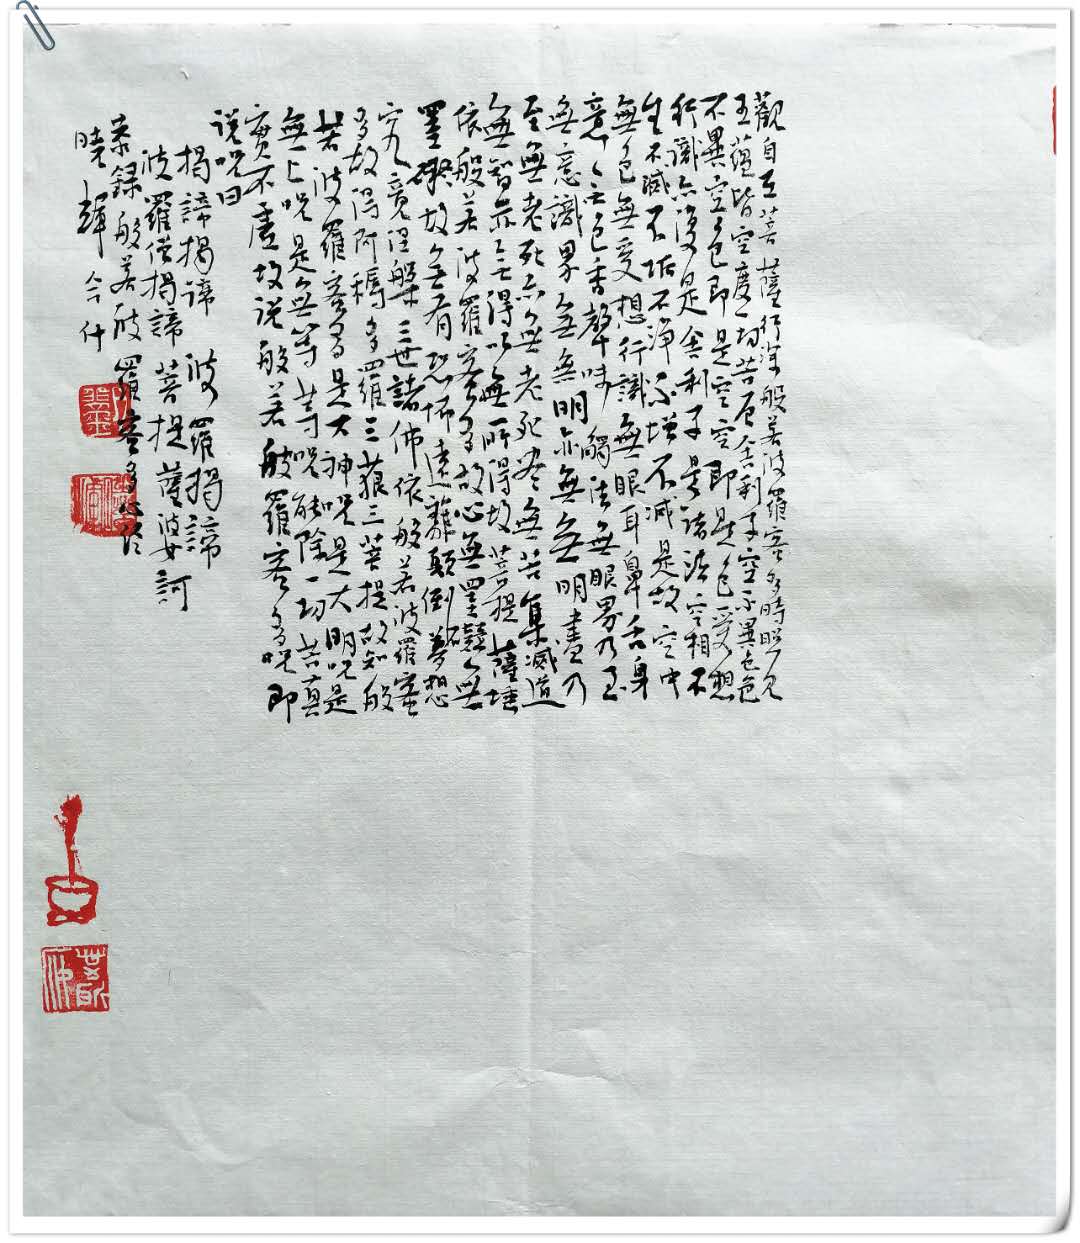 觀自在菩薩行深般若波羅密多時照見
五蘊皆空度一切苦厄舍利子空不異色色
不異空色即是空空即是色受想
行識亦復是舍利子是諸法空相不
生不滅不垢不淨不增不減是故空中
無色無受想行識無眼耳鼻舌身
意無色香聲味觸法無眼界乃至
無意識界無無明亦無無明盡乃
至無老死亦無老死盡無苦集滅道
無智亦無得以無所得故菩提薩埵
依般若波羅密多故心無罣礙無
罣礙故無有恐怖遠離顛倒夢想
究竟涅槃三世諸佛依般若波羅蜜
多故得阿耨多羅三藐三菩提故知般
若波羅密多是大神咒是大明咒是
無上咒是無等等咒能除一切苦真
實不虛故説般若般羅密多咒即
説咒曰
揭諦揭諦 波羅揭諦
波羅僧揭諦菩提薩婆訶
恭錄般若般羅密多心經
曉輝